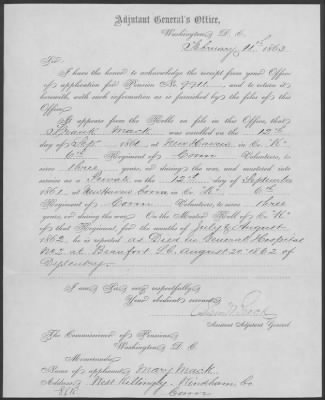 Adjutant General's Office,
Washington D. C.
February 11th 1863
Sir:
I have the honor to acknowledge the receipt from your Office
of application for Pension No. 9911, and to return it
herewith, with such information as is furnished by the files of this
Office.
It appears from the Rolls on file in this Office, that
Frank Mack was enrolled on the 12th
day of Sept 1861 at New Haven in Co. "K"
6th Regiment of Conn Volunteers, to
serve three years, or during the war, and mustered into
service as a Private on the 12th day of September
1861, at New Haven Conn in Co. "K" 6th
Regiment of Conn Volunteers, to serve three
years, or during the war. On the Muster Roll of Co. "K"
of that Regiment, for the months of July & August
1862, he is reported as Died in General Hospital
No 2 at Beaufort S.C. August 20 1862 of
Dysentery.
I am, Sir, very respectfully,
Your obedient servant,
Assistant Adjutant General.
The Commissioner of Pensions,
Washington D. C.
Memoranda:
Name of applicant, Mary Mack
Address, West Killingly, Windham Co.
Conn